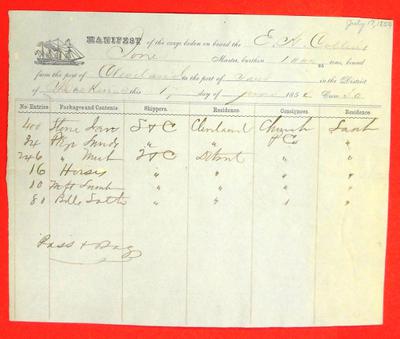 July 17, 1856
MANIFEST of the cargo laden on board the E. K. Collins
Jones Master, burthen 1000 tons, bound
from the port of Cleveland to the port of Saut in the District
of Mackinac this 17 day of 1856
No. Entries Packages and Contents Shippers. Residence Consignees Residence
400 Stone S & C Cleveland Church & Co Saut
34 Pkgs Sunds " " " "
246 " Mdse S & C Detroit " "
16 Horses " " " "
10 M ft " " " "
81 Bales " " " "
Pass & Bag